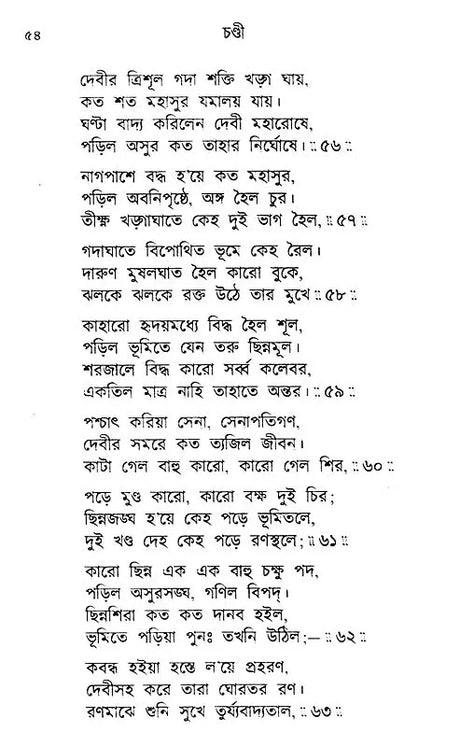 ৫৪
চণ্ডী
দেবীর ত্রিশূল গদা শক্তি খড়্গ ঘায়,
কত শত মহাসুর যমালয় যায়।
ঘণ্টা বাদ্য করিলেন দেবী মহারোষে,
পড়িল অসুর কত তাহার নির্ঘোষে।ঃঃ৫৬ঃঃ
নাগপাশে বদ্ধ হ'য়ে কত মহাসুর,
পড়িল অবনিপৃষ্ঠে, অঙ্গ হৈল চুর।
তীক্ষ্ণ খড়্গাঘাতে কেহ দুই ভাগ হৈল,ঃঃ৫৭ঃঃ
গদাঘাতে বিপোথিত ভূমে কেহ রৈল।
দারুণ মুষলঘাত হৈল কারো বুকে,
ঝলকে ঝলকে রক্ত উঠে তার মুখেঃঃ৫৮ঃঃ
কাহারো হৃদয়মধ্যে বিদ্ধ হৈল শূল,
পড়িল ভূমিতে যেন তরু ছিন্নমূল।
শরজালে বিদ্ধ কারো সর্ব্ব কলেবর,
একতিল মাত্র নাহি তাহাতে অন্তর।ঃঃ৫৯ঃঃ
পশ্চাৎ করিয়া সেনা, সেনাপতিগণ,
দেবীর সমরে কত ত্যজিল জীবন।
কাটা গেল বাহু কারো, কারো গেল শির,ঃঃ৬০ঃঃ
পড়ে মুণ্ড কারো, কারো বক্ষ দুই চির;
ছিন্নজঙ্ঘ হ'য়ে কেহ পড়ে ভূমিতলে,
দুই খণ্ড দেহ কেহ পড়ে রণস্থলে;ঃঃ৬১ঃঃ
কারো ছিন্ন এক এক বাহু চক্ষু পদ,
পড়িল অসুরসঙ্ঘ, গণিল বিপদ্‌।
ছিন্নশিরা কত কত দানব হইল,
ভূমিতে পড়িয়া পুনঃ তখনি উঠিল;—ঃঃ৬২ঃঃ
কবন্ধ হইয়া হস্তে ল'য়ে প্রহরণ,
দেবীসহ করে তারা ঘোরতর রণ।
রণমাঝে শুনি সুখে তূর্য্যবাদ্যতাল,ঃঃ৬৩ঃঃ